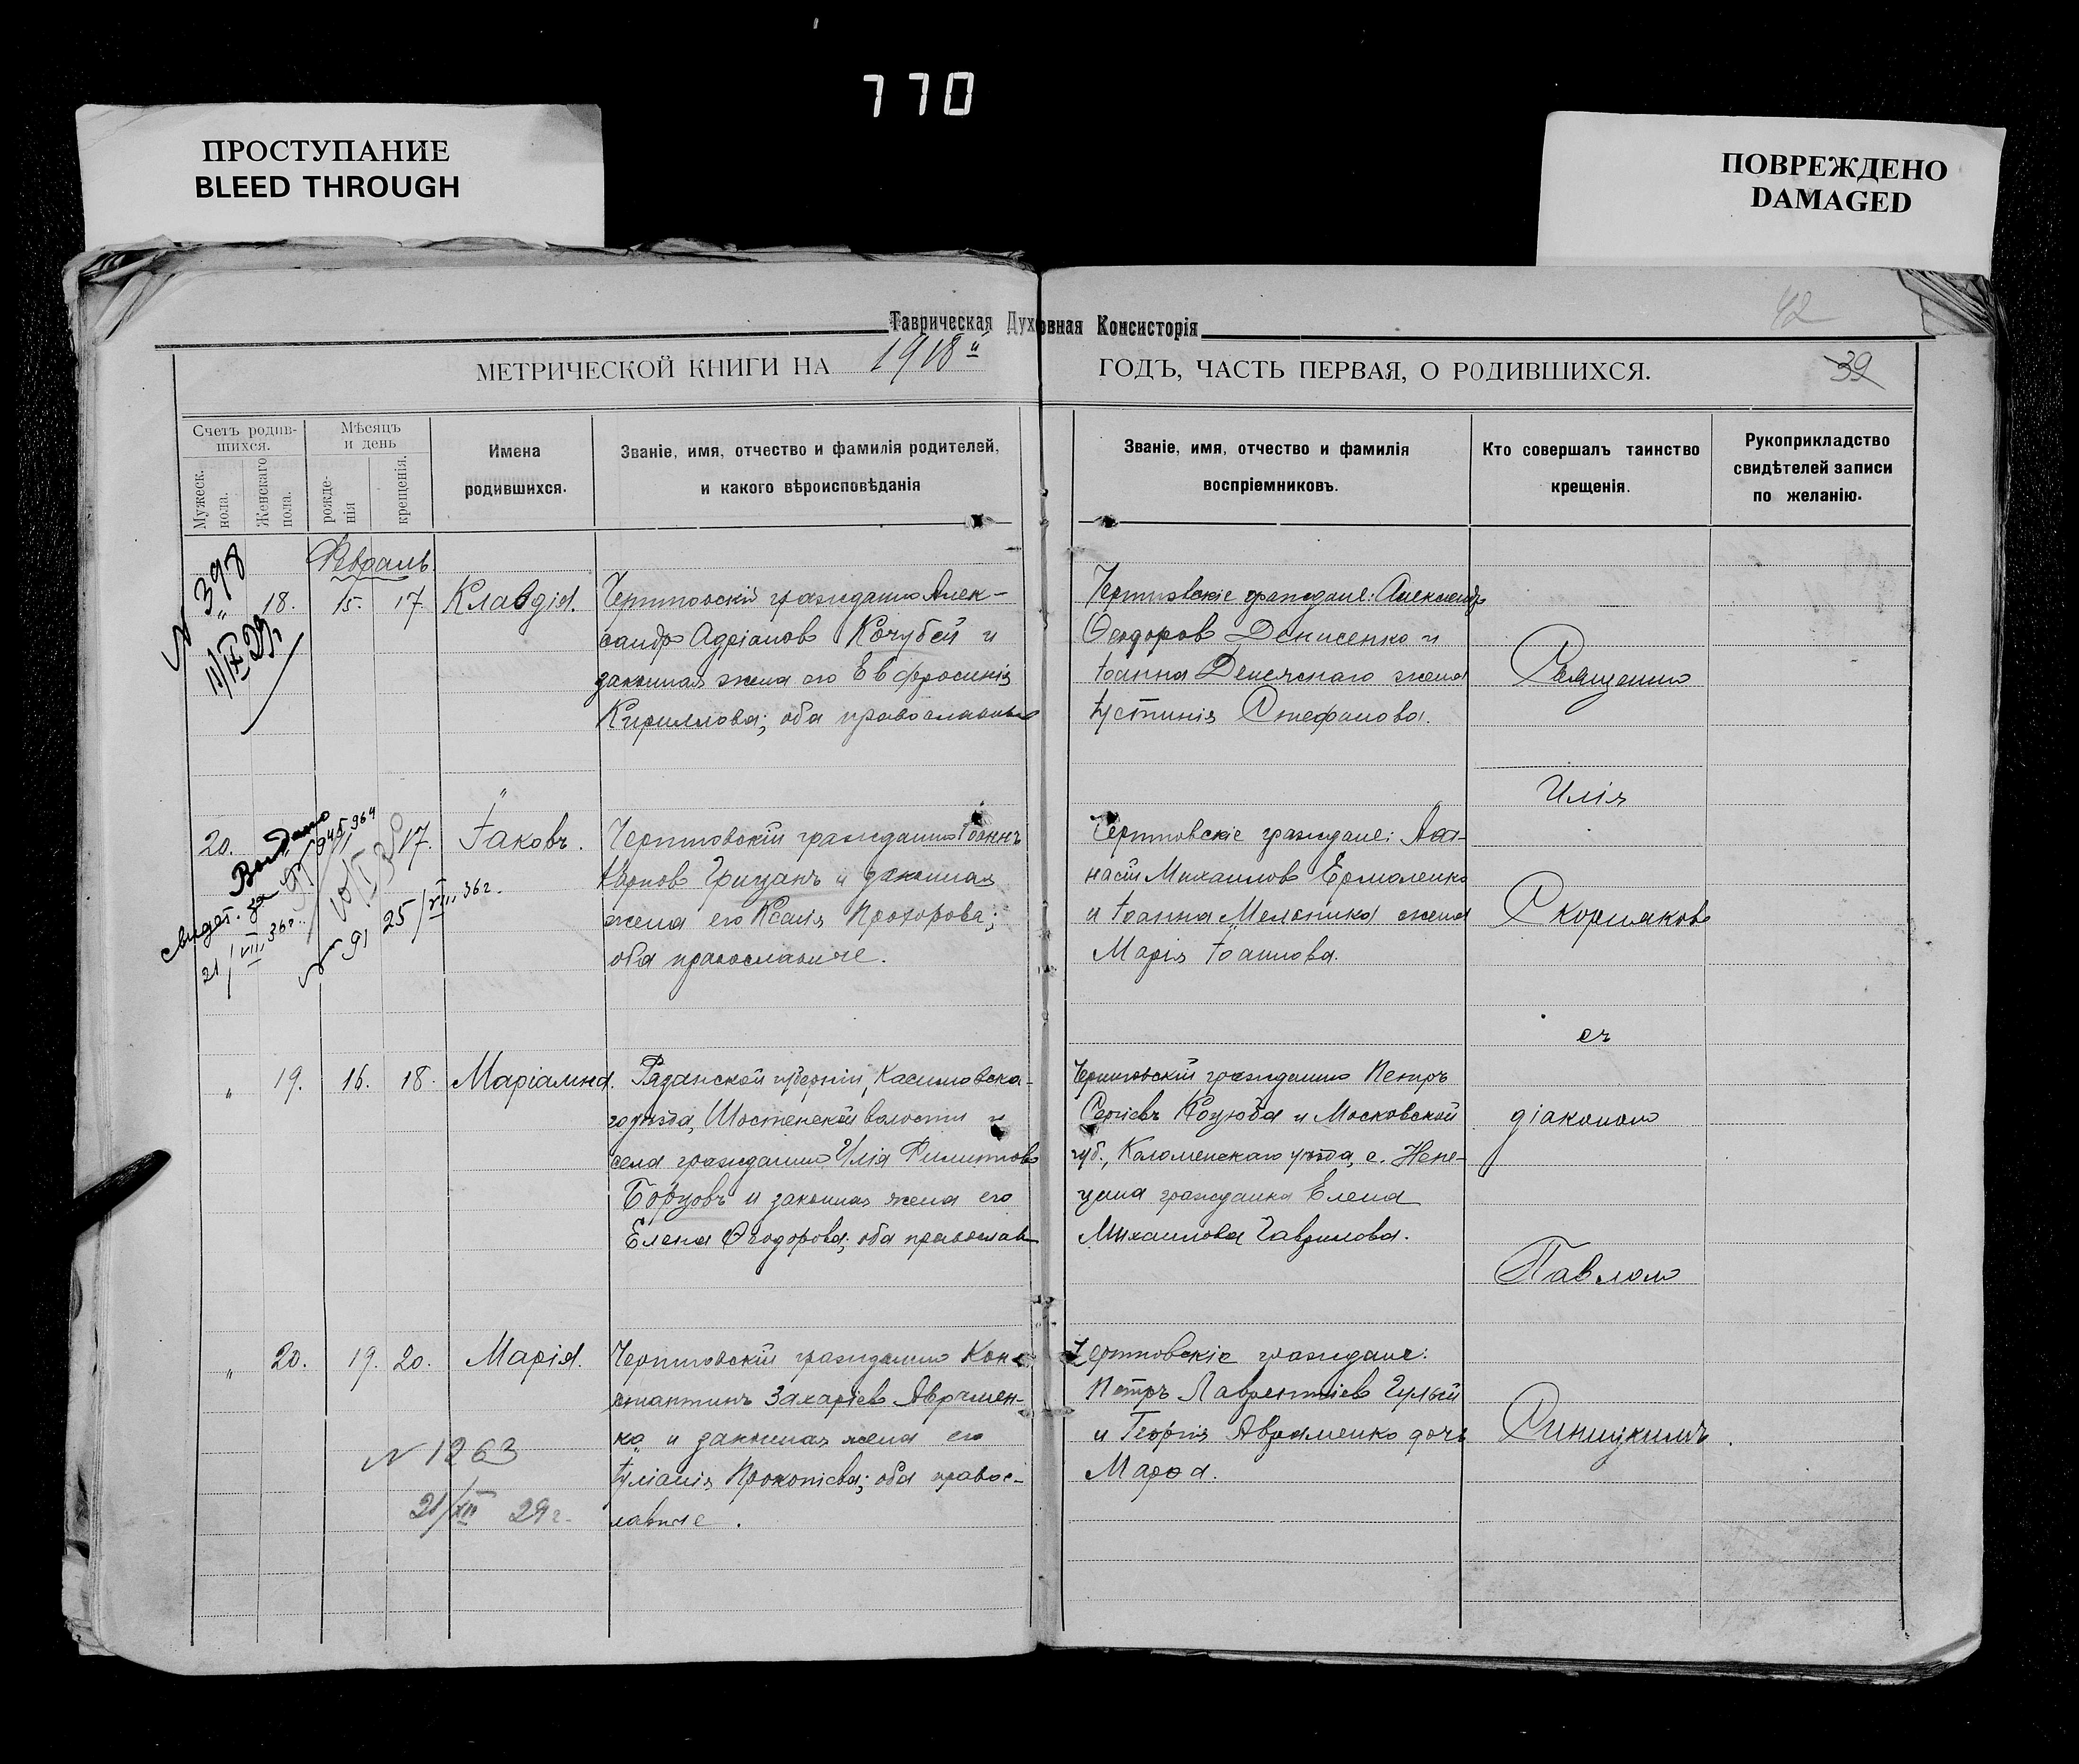 770
ПРОСТУПАНИЕ
BLEED THROUGH
ПОВРЕЖДЕНО
DAMAGED
Таврическая Духовная Консисторія
42
МЕТРИЧЕСКОЙ КНИГИ НА 1918й ГОДЪ, ЧАСТЬ ПЕРВАЯ, О РОДИВШИХСЯ.
39
Счетъ родив-
шихся.
Мужеск. пола.
Женскаго пола.
Мѣсяцъ
и день
рожде-
нія
крещенія.
Имена
родившихся.
Званіе, имя, отчество и фамилія родителей,
и какого вѣроисповѣданія
Званіе, имя, отчество и фамилія
воспріемниковъ.
Кто совершалъ таинство
крещенія.
Рукоприкладство
свидѣтелей записи
по желанію.
Февраль
N 398
" 18. 15. 17. Клавдія.
Черниговскій гражданинъ Алек-
сандръ Адріановъ Кочубей и
законная жена его Евфросинія
Кириллова; оба православные
Черниговскіе граждане: Александръ
Ѳеодоровъ Денисенко и
Іоанна жена
Іустинія Стефанова.
Священникъ
Илія
Скорняковъ
съ
діакономъ
Павломъ
Синицкимъ.
20. " 17. Іаковъ.
Выдано
свидет. за
21/VIII 36г.
N 91 25/VIII 36г.
Черниговскій гражданинъ Іоаннъ
Карповъ Грицанъ и законная
жена его Ксенія Прохорова;
оба православные.
Черниговскіе граждане: Аѳа-
насій Михаиловъ Ермоленко
и Іоанна Мельника жена
Марія Іоаннова.
" 19. 16. 18. Маріамна.
Рязанской губерніи, Касимовска-
го уѣзда, волости и
села гражданинъ Илія Филипповъ
Борзовъ и законная жена его
Елена Ѳеодорова; оба православ
Черниговскій гражданинъ Петръ
Сергіевъ Коцюба и Московской
губ., Коломенскаго уѣзда, с.
гражданка Елена
Михаилова Гаврилова.
" 20. 19. 20. Марія.
N 1263
21/XII 29г.
Черниговскій гражданинъ Кон-
стантинъ Захаріевъ Аврамен-
ко и законная жена его
Іуліанія Прокопіева; оба правос-
лавные.
Черниговскіе граждане:
Петръ Лаврентіевъ Гулый
и Георгія Авраменко дочь
Марѳа.